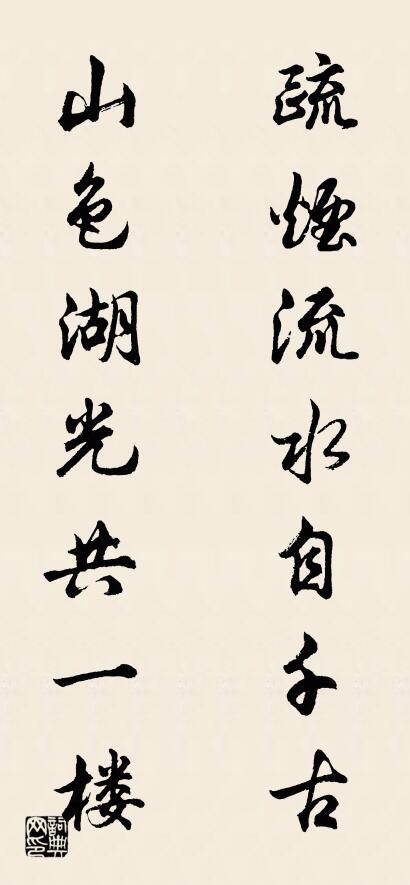 疏煙流水自千古
山色湖光共一楼
詞典网印